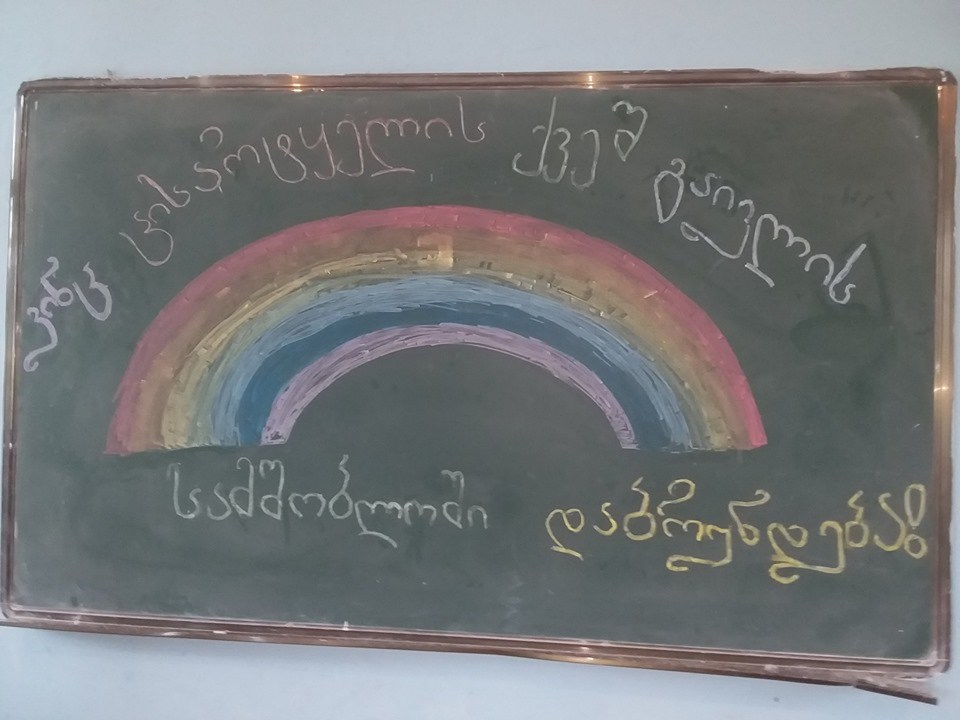 ვინც ცისარტყელის ქვეშ გაივლის
სამშობლოში დაბრუნდება!